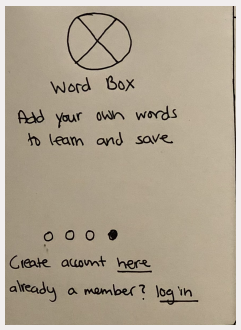 Word Box
Add your own words
to learn and save
Create account here
already a member? log in